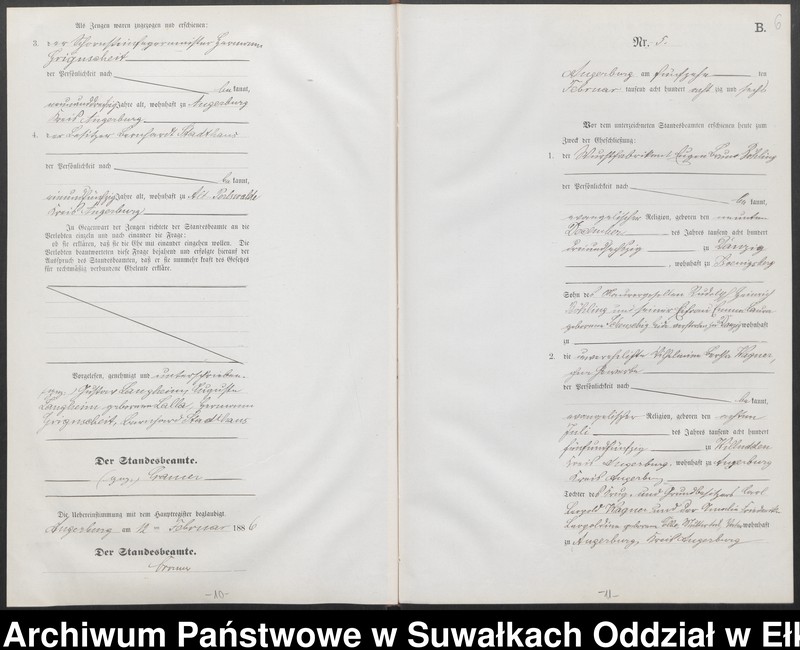 Als Zeugen waren zugezogen und erschienen:
3. der Schornsteinfegermeister Hermann
Grigenscheit
der Persönlichkeit nach
bekannt,
neununddreißig Jahre alt, wohnhaft zu Angerburg
Kreis Angerburg
4. der Besitzer Bernhardt Stadthaus
der Persönlichkeit nach
bekannt,
einundfünfzig Jahre alt, wohnhaft zu Alt
Kreis Angerburg
In Gegenwart der Zeugen richtete der Standesbeamte an die
Verlobten einzeln und nach einander die Frage:
ob sie erklären, daß sie die Ehe mit einander eingehen wollen. Die
Verlobten beantworteten diese Frage bejahend und erfolgte hierauf der
Ausspruch des Standesbeamten, daß er sie nunmehr kraft des Gesetzes
für rechtmäßig verbundene Eheleute erkläre.
Vorgelesen, genehmigt und unterschrieben.
(gez.) Gustav Langheim, Auguste
Langheim geborene Lalla, Hermann
Grigenscheit, Bernhard Stadthaus
Der Standesbeamte.
(gez.) Cramer
Die Uebereinstimmung mit dem Hauptregister beglaubigt.
Angerburg am 12 ten Februar 1886
Der Standesbeamte.
Cramer
-10-
B. 6
Nr. 5.
Angerburg am fünfzehn ten
Februar tausend acht hundert acht zig und sechs
Vor dem unterzeichneten Standesbeamten erschienen heute zum
Zweck der Eheschließung:
1. der Wurstfabrikant Eugen Bruno
der Persönlichkeit nach
bekannt,
evangelischer Religion, geboren den neunten
Dezember des Jahres tausend acht hundert
dreiundsechszig zu Danzig
, wohnhaft zu Koenigsberg
Sohn des Maurergesellen Rudolph Heinrich
und seiner Ehefrau Emma Laura
geborene beide verstorben zu Danzig wohnhaft
zu
2. die unverehelichte Wilhelmine Bertha Wagner,
ohne Gewerbe
der Persönlichkeit nach
bekannt,
evangelischer Religion, geboren den achten
Juli des Jahres tausend acht hundert
fünfundfünfzig zu Willudden
Kreis Angerburg, wohnhaft zu Angerburg
Kreis Angerburg
Tochter des Krug- und Grundbesitzers Carl
Leopold Wagner und der Amalie Friederike
Leopoldine geborene wohnhaft
zu Angerburg, Kreis Angerburg
-11-
Archiwum Państwowe w Suwałkach Oddział w Ełk